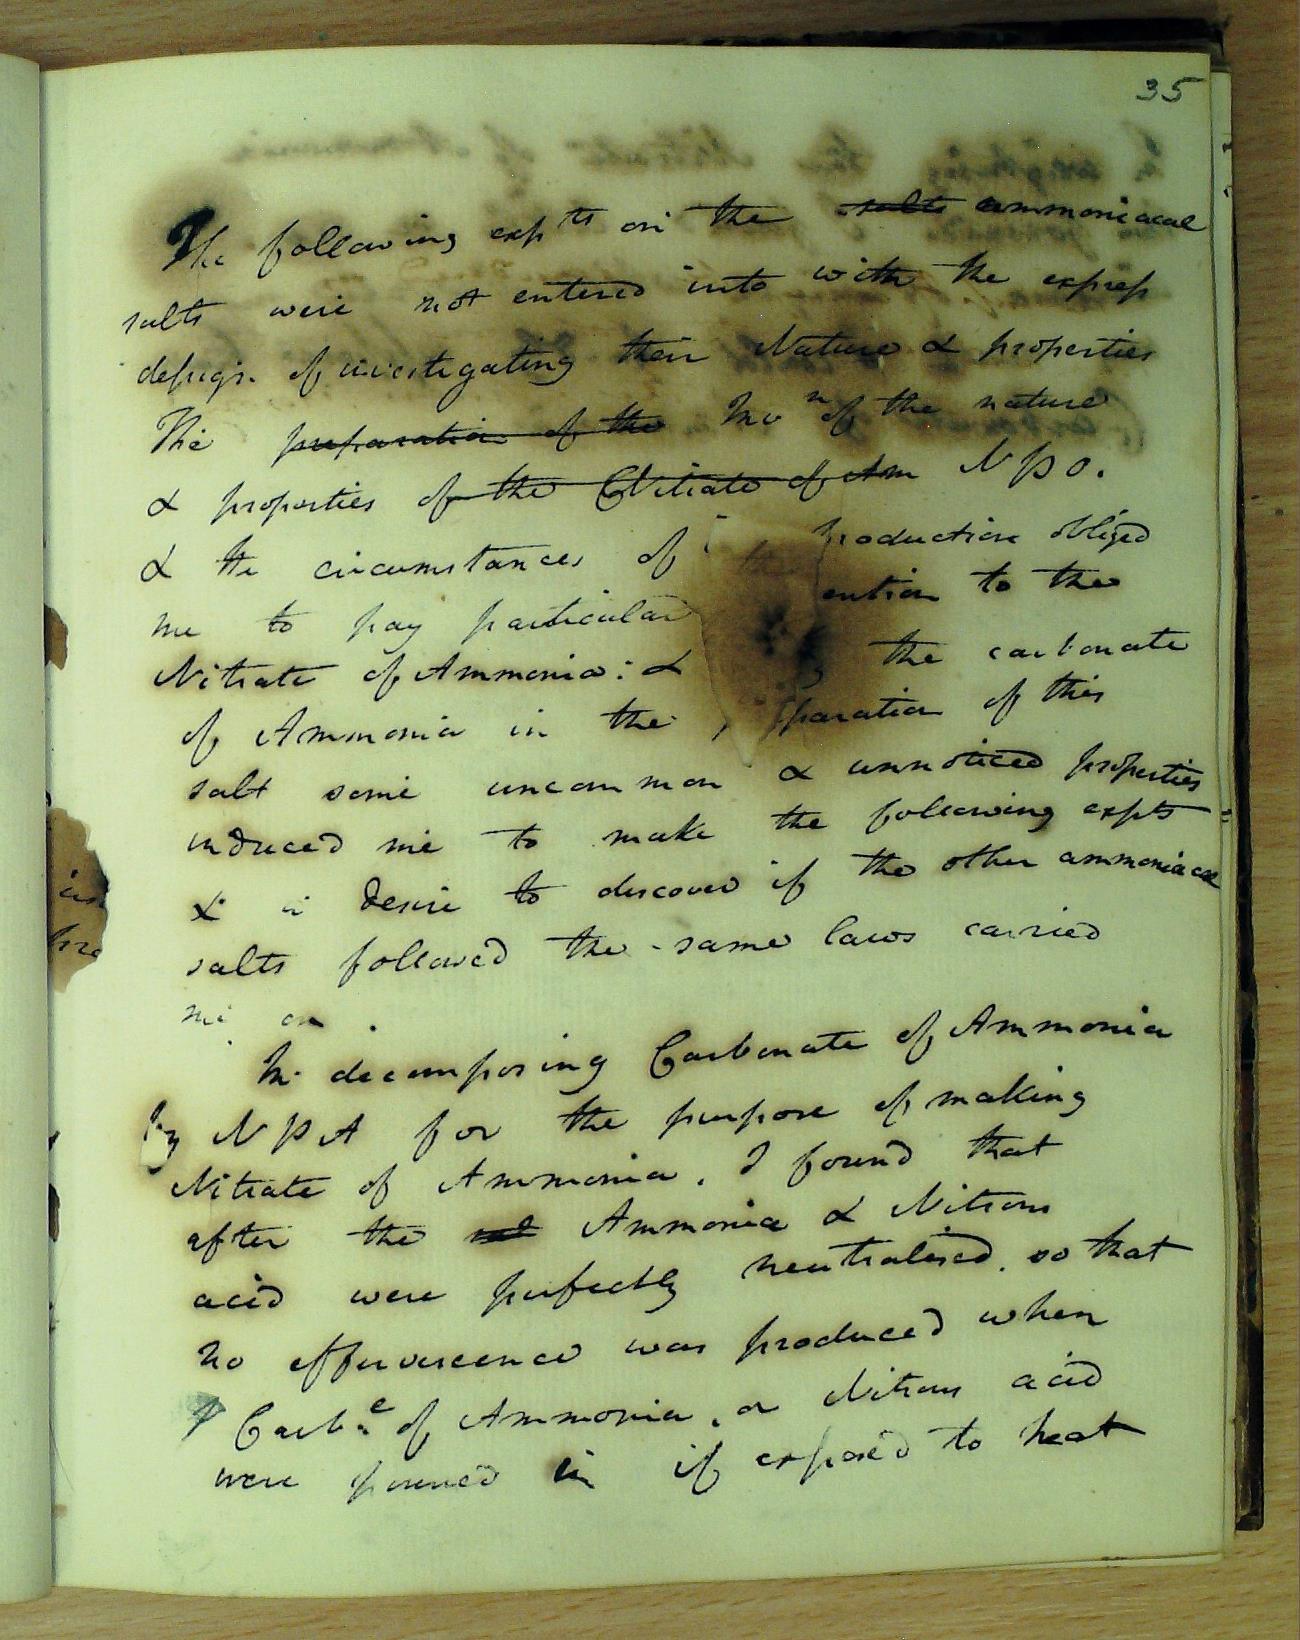 35
The following exp ts on the salts ammoniacal
salts were not entered into with the express
design of investigating their Nature & properties
The preparation of the Inv n of the nature
& properties of the Nitrate of Am N P O.
& the circumstances of the production obliged
me to pay particular ention to the
Nitrate of Ammonia: & the carbonate
of Ammonia in the paration of this
salt some uncommon & unnoticed properties
induced me to make the following expts
& a desire to discover if the other ammoniacal
salts followed the same laws carried
me on.
In decomposing Carbonate of Ammonia
by N P A for the purpose of making
Nitrate of Ammonia, I found that
after the Ammonia & Nitrous
acid were perfectly neutralised, so that
no effervescence was produced when
Carb. e of Ammonia, or Nitrous acid
were poured in if exposed to heat